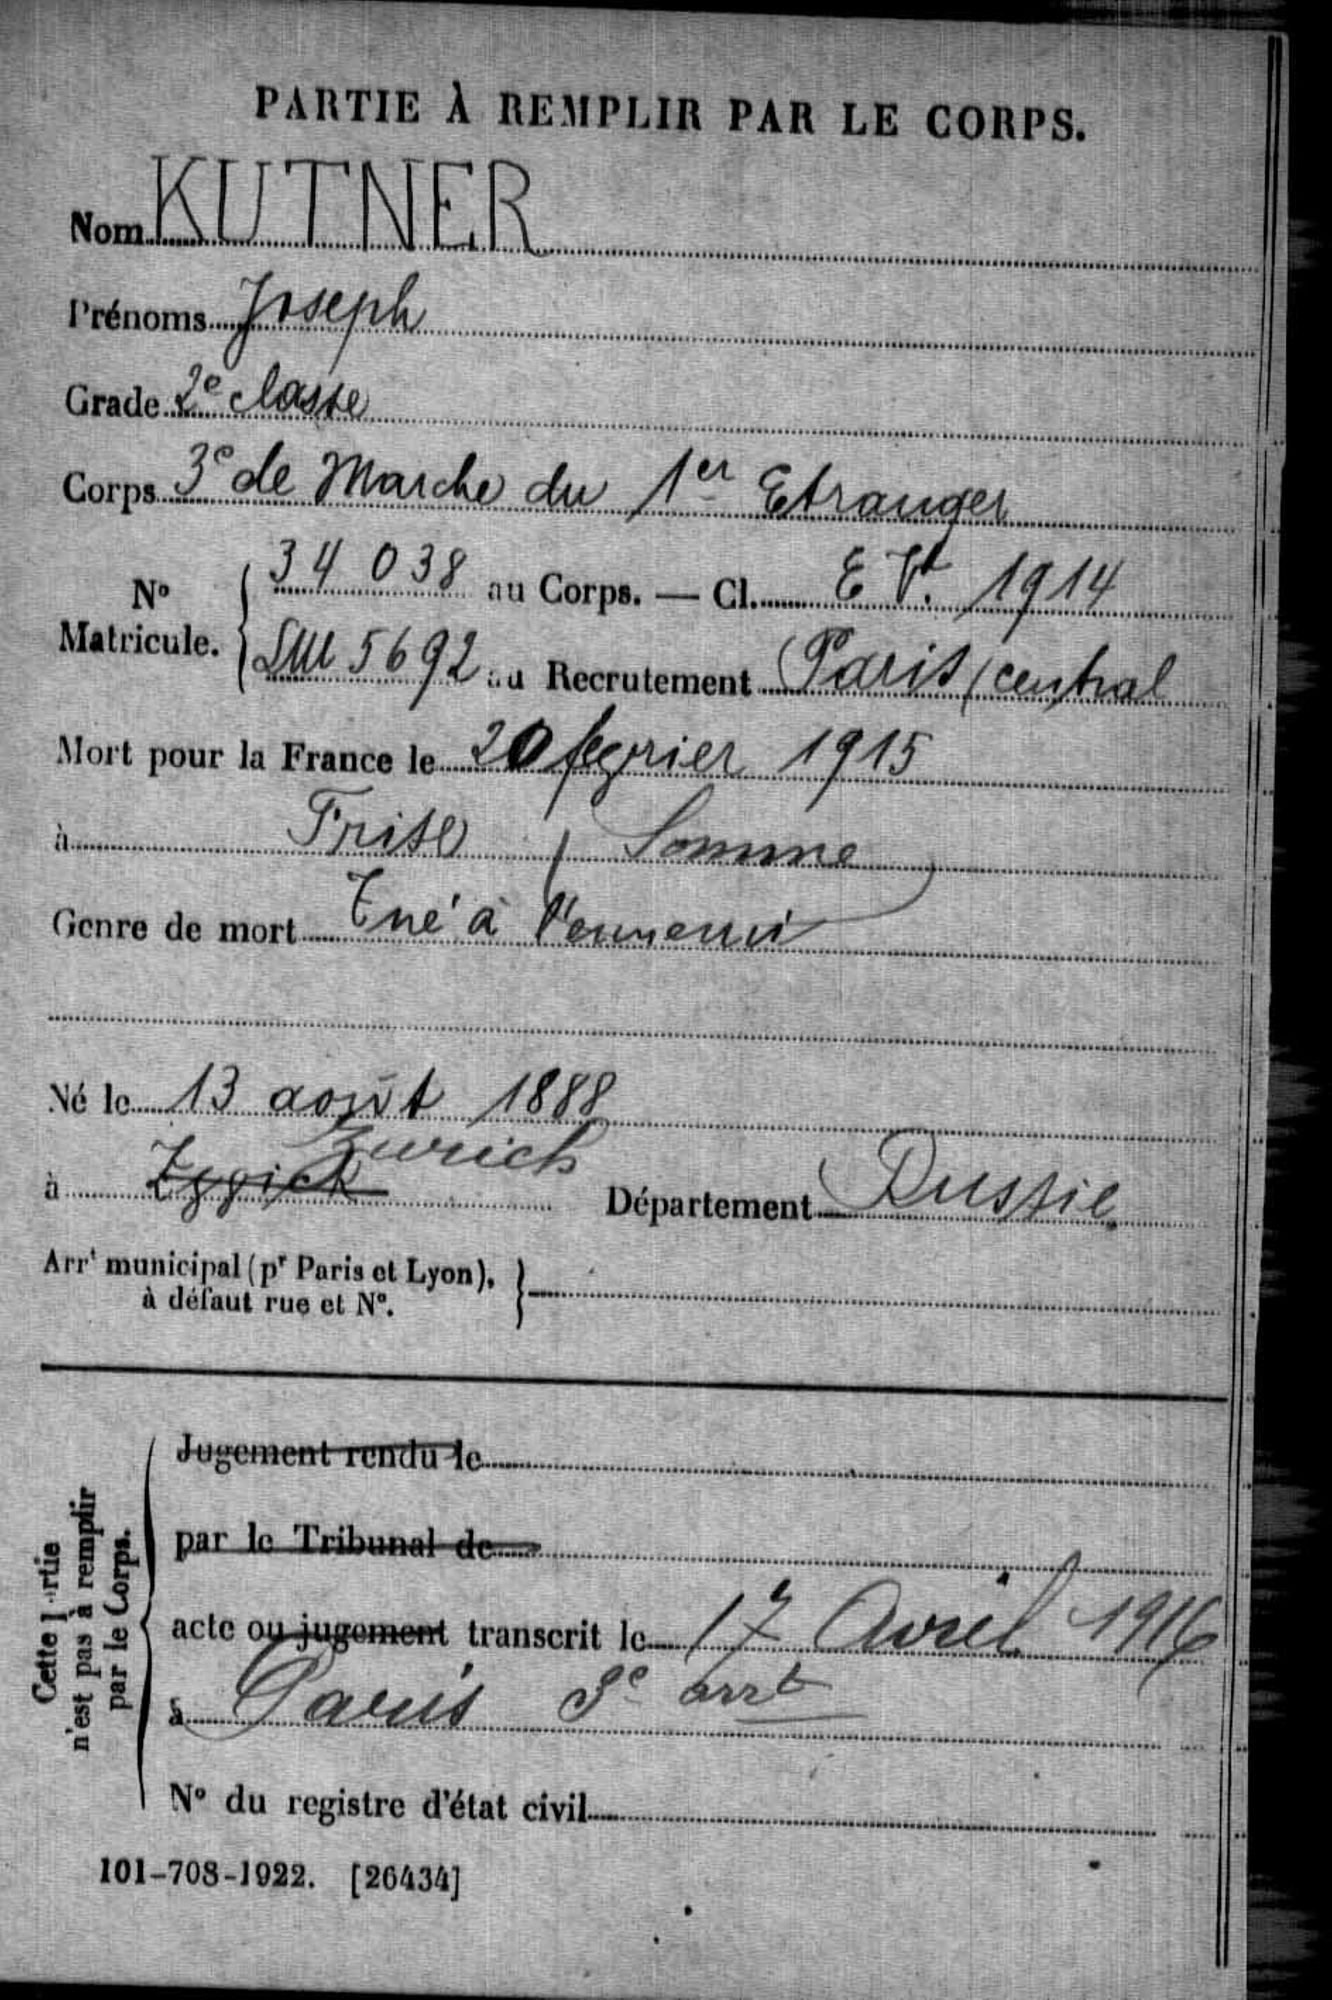 PARTIE À REMPLIR PAR LE CORPS.
Nom KUTNER
Prénoms Joseph
Grade 2e classe
Corps 3e de Marche du 1er Etranger
No Matricule. { 34 038 au Corps. — Cl. E Vt. 1914
5692 au Recrutement Paris central
Mort pour la France le 20 fevrier 1915
à Frise (Somme)
Genre de mort Tué à l'ennemi
Né le 13 août 1888
Zurich
à Département Russie
Arrt municipal (pr Paris et Lyon), }
à défaut rue et No.
Jugement rendu le
par le Tribunal de
acte ou jugement transcrit le 17 Avril 1916
à Paris 3e arrt
No du registre d'état civil
Cette Partie
n'est pas à remplir
par le Corps.
101-708-1922. [26434]